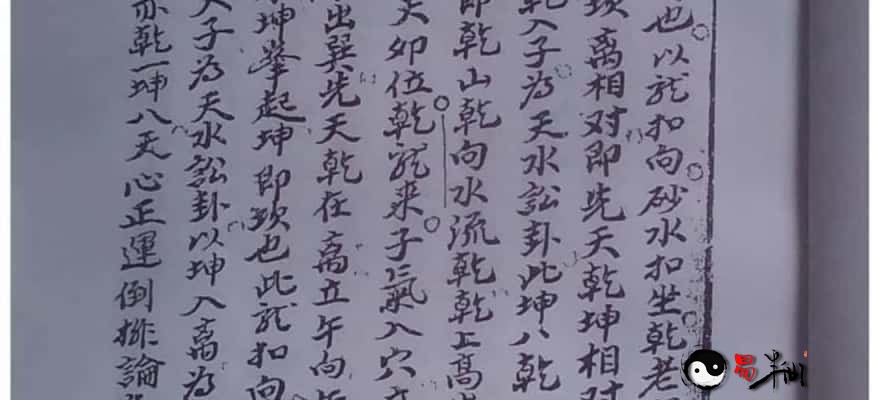 也以龍扣向砂水扣坐乾老
坎离相对即先天乾坤相对
乾入子為天水訟卦此坤八乾
即乾山乾向水流乾乾上高
天卯位乾龍来子氣入穴
出巽先天乾在离立午向
坤举起坤即坎也此龍扣向
天子為天水訟卦以坤入离為
亦乾一坤八天心正運倒排論
易半仙